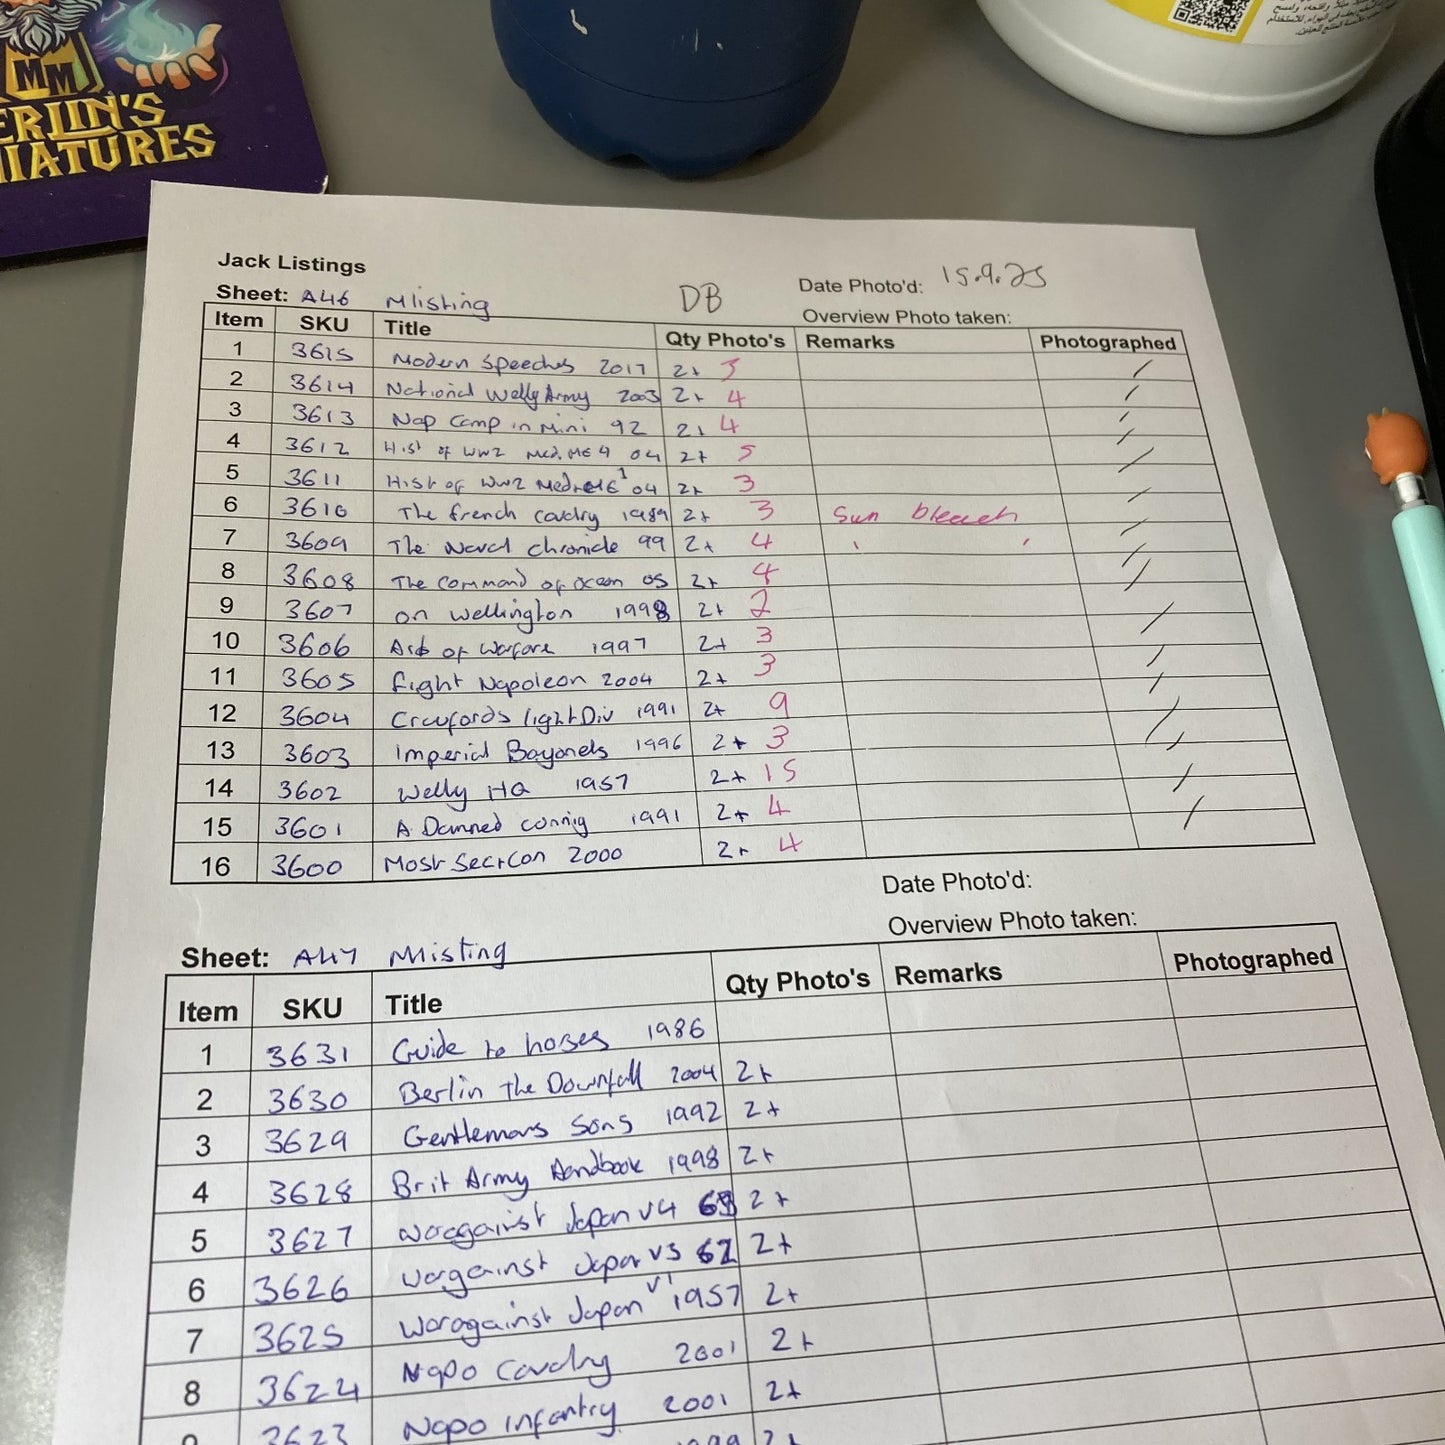 MM
ERLIN'S
IATURES
Jack Listings
Date Photo'd: 15.9.25
Sheet: A46 Mlisting DB
Overview Photo taken:
Item SKU Title Qty Photo's Remarks Photographed
1 3615 Modern Speeches 2017 2+ 3 /
2 3614 National Welly Army 2003 2+ 4 /
3 3613 Nap Camp in Mini 92 2+ 4 /
4 3612 Hist of WW2 Med. ME 4 04 2+ 5 /
5 3611 Hist of WW2 Med 1 04 2+ 3 /
6 3610 The french cavalry 1989 2+ 3 Sun bleach /
7 3609 The Naval chronicle 99 2+ 4 ' ' /
8 3608 The Command of Ocean 05 2+ 4 /
9 3607 on wellington 1998 2+ 2 /
10 3606 of Warfare 1997 2+ 3 /
11 3605 fight Napoleon 2004 2+ 3 /
12 3604 Craufords light Div 1991 2+ 9 /
13 3603 Imperial Bayonets 1996 2+ 3 /
14 3602 Welly HQ 1957 2+ 15 /
15 3601 A Damned 1991 2+ 4 /
16 3600 Most Secrcon 2000 2+ 4
Date Photo'd:
Overview Photo taken:
Sheet: A47 Mlisting
Item SKU Title Qty Photo's Remarks Photographed
1 3631 Guide to horses 1986
2 3630 Berlin the Downfall 2004 2+
3 3629 Gentlemans Sons 1992 2+
4 3628 Brit Army Handbook 1998 2+
5 3627 Waragainst Japan V4 2+
6 3626 Wargainst Japan V3 62 2+
7 3625 Waragainst Japan V1 1957 2+
8 3624 Napo Cavalry 2001 2+
9 3623 Napo infantry 2001 2+
2+